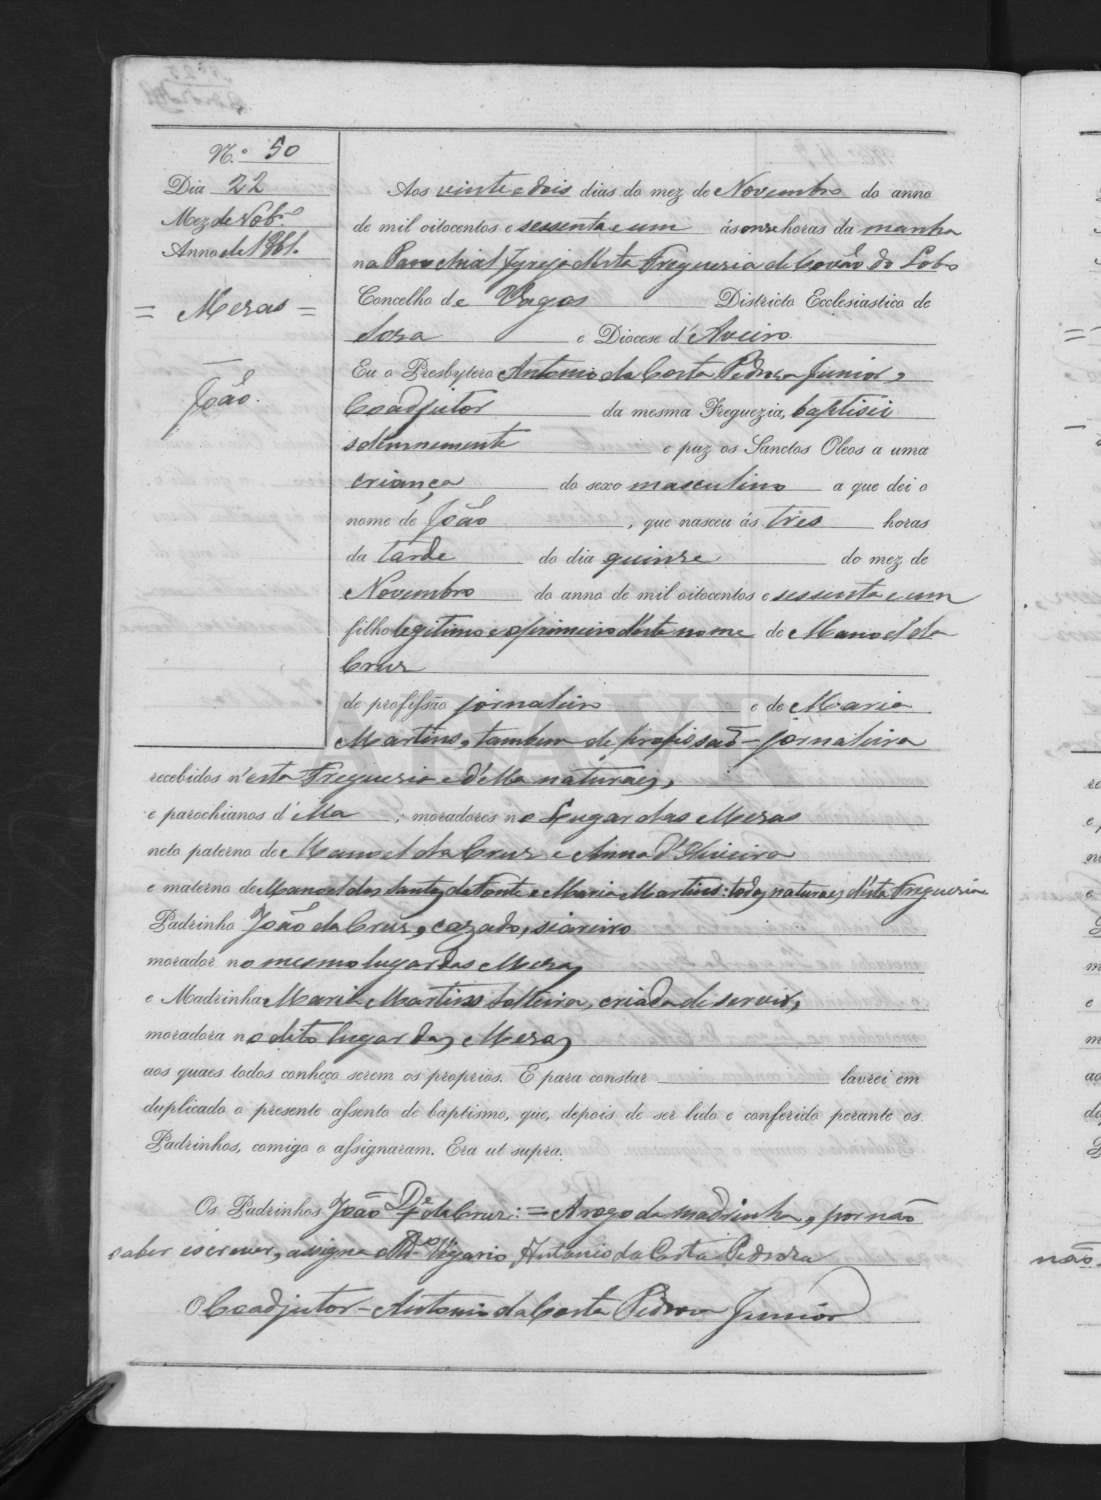 N.º 50
Dia 22
Mez de Nobr.º
Anno de 1861.
= Mesas =
João.
Aos vinte e dois dias do mez de Novembro do anno
de mil oitocentos e sessenta e um ás onse horas da manha
na Parochial Igreja d'esta Freguesia de Covão do Lobo
Concelho de Vagos Districto Ecclesiastico de
Soza e Diocese d'Aveiro.
Eu o Presbytero Antonio da Costa Pedroza Junior,
Coadjutor da mesma Freguezia, baptisei
solemnemente e puz os Sanctos Oleos a uma
criança do sexo masculino a que dei o
nome de João, que nasceu ás tres horas
da tarde do dia quinze do mez de
Novembro do anno de mil oitocentos e sessenta e um
filho legitimo e o primeiro d'este nome de Manoel da
Cruz
de profissão jornaleiro e de Maria
Martins, tambem de profissaõ - jornaleira
recebidos n'esta Freguesia e d'ella naturaes,
e parochianos d'ella; moradores no Lugar das Mesas
neto paterno de Manoel da Cruz e Anna d'Oliveira
e materno de Manoel dos Santos da Fonte e Maria Martins: todos naturaes d'esta Freguesia
Padrinho João da Cruz, cazado, siareiro
morador no mesmo lugar das Mesas
e Madrinha Maria Martins solteira, criada de servir,
moradora no dito lugar das Mesas
aos quaes todos conheço serem os proprios. E para constar lavrei em
duplicado o presente assento de baptismo, que, depois de ser lido e conferido perante os
Padrinhos, comigo o assignaram. Era ut supra.
Os Padrinhos João da Cruz: = A rogo da madrinha, por não
saber escrever, assigna o Vigario Antonio da Costa Pedroza
O Coadjutor - Antonio da Costa Pedroza Junior
não
ADAVR